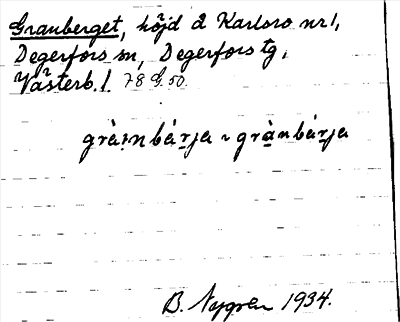 Granberget, höjd å Karlsro nr 1,
Degerfors sn, Degerfors tg,
Västerb. l. 78 G. 50.
grà:nbár̲ja ~ grà̲nbár̲ja
B. Nygren 1934.